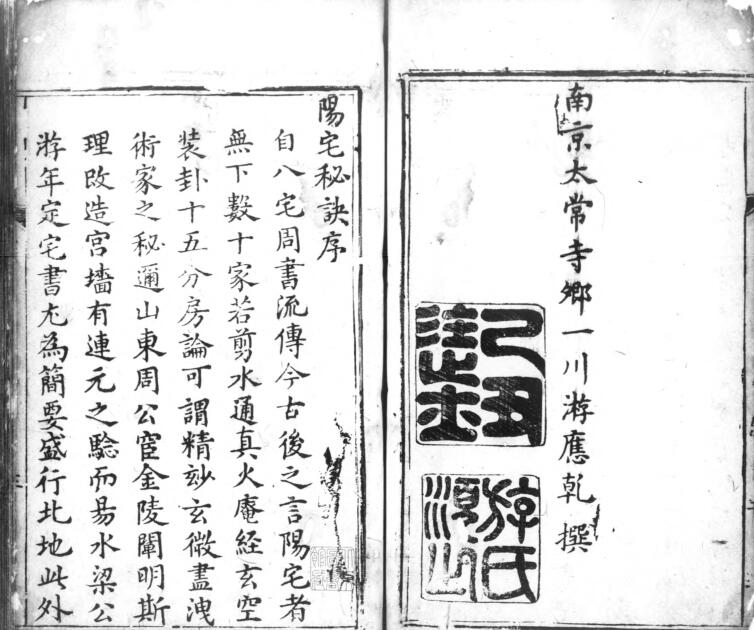 南京太常寺卿一川游應乾撰
己丑
進士
游氏
順之
陽宅秘訣序
自八宅周書流傳今古後之言陽宅者
無下數十家若剪水通真火庵経玄空
装卦十五分房論可謂精玅玄微盡洩
術家之秘邇山東周公宦金陵闡明斯
理改造宫墻有連元之騐而易水梁公
游年定宅書尤為簡要盛行北地此外